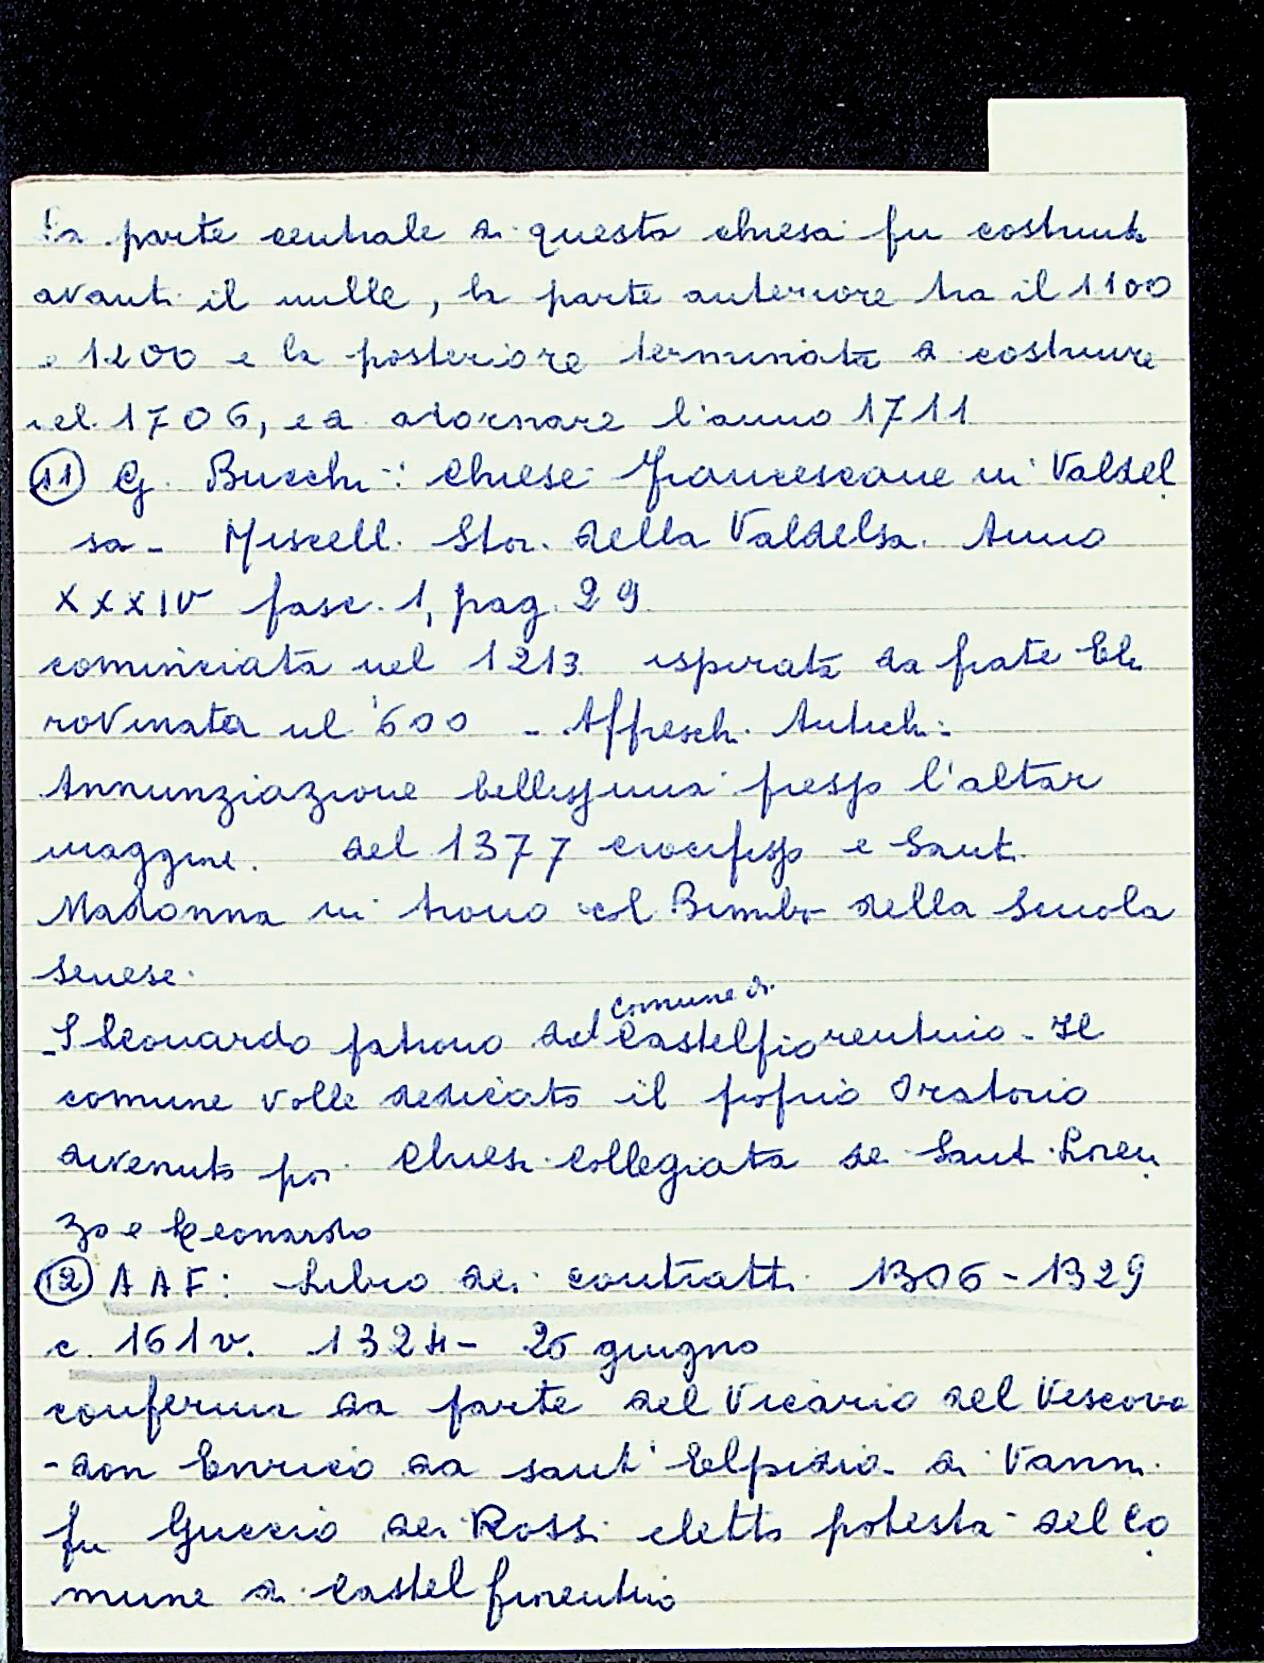 La parte centrale di questa chiesa fu costruita
avanti il mille, la parte anteriore tra il 1100
e 1200 e la posteriore terminata a costruire
nel 1706, e a adornare l'anno 1711
(11) G. Bucchi: Chiese francescane in Valdel
sa - Miscell. Stor. della Valdelsa. Anno
XXXIV fasc. 1, pag. 29
cominciata nel 1213 ispirata da frate Elia
rovinata nel '600 - Affreschi Antichi:
Annunziazione bellissima presso l'altar
maggiore. del 1377 crocifisso e Santi
Madonna in trono col Bimbo della Scuola
senese.
- S Leonardo patrono del comune di Castelfiorentino - Il
comune volle dedicato il proprio Oratorio
divenuto poi Chiesa Collegiata dei Santi Loren
zo e Leonardo
(12) A A F: Libro dei contratti 1306 - 1329
c. 161 v. 1324 - 26 giugno
conferma da parte del Vicario del Vescovo
- don Enrico da sant'Elpidio - di Vanni
fu Guccio dei Rossi eletto potestà del Co
mune di Castelfiorentino